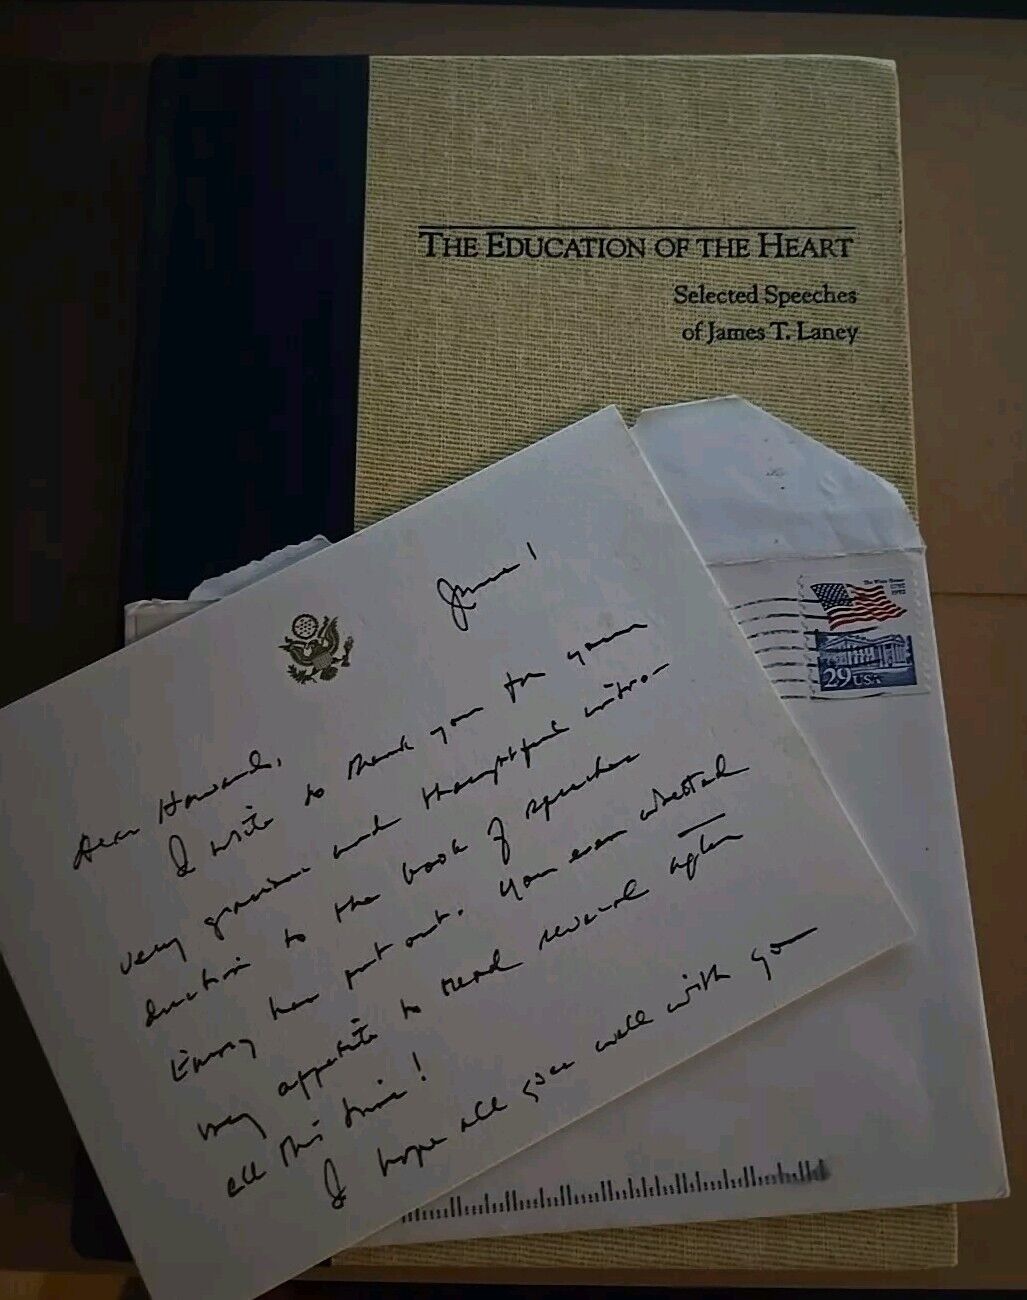 THE EDUCATION OF THE HEART
Selected Speeches
of James T. Laney
The White House
29 USA
June 1
Dear Howard,
I write to thank you for your
very gracious and thoughtful intro-
duction to the book of speeches
Emory has put out. You even whetted
my appetite to read several after
all this time!
I hope all goes well with you